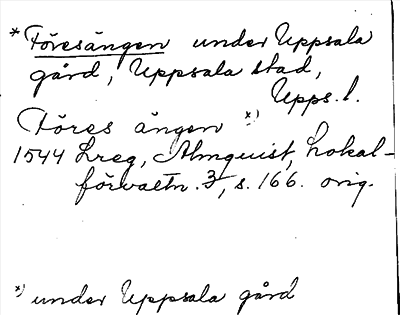 *Föresängen under Uppsala
gård, Uppsala stad,
Upps. l.
Föres ängen x)
1544 Lreg, Almquist, Lokal-
förvaltn. 3, s. 166. orig.
x) under Uppsala gård